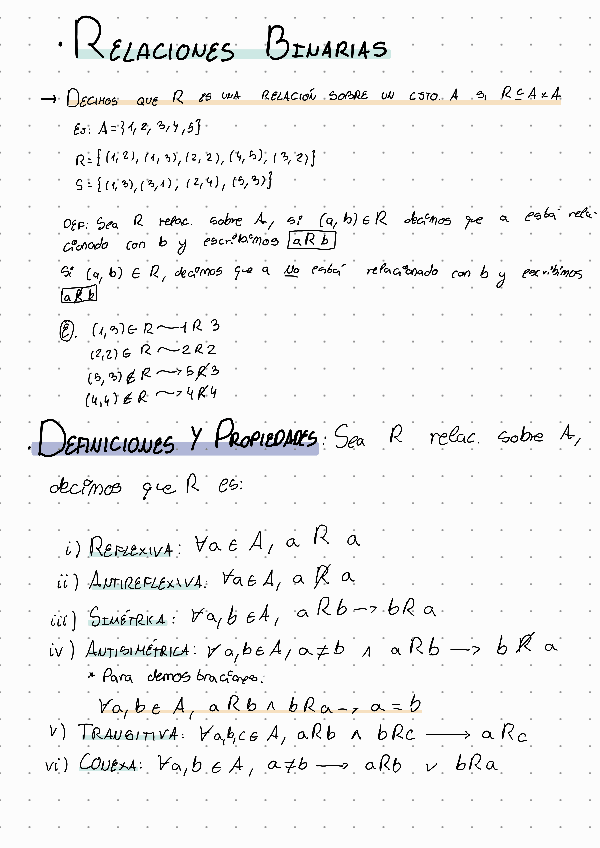 · RELACIONES BINARIAS
→ DECIMOS QUE R ES UNA RELACIÓN SOBRE UN CJTO. A SI R ⊆ A×A
Ej: A={1,2,3,4,5}
R={(1,2),(1,3),(2,2),(4,5),(3,2)}
S={(1,3),(3,1),(2,4),(5,3)}
DEF: Sea R relac. sobre A, si (a,b) ∈ R decimos que a está rela-
cionado con b y escribimos aRb
Si (a,b) ∈ R, decimos que a NO está relacionado con b y escribimos
a R̸ b
Ej. (1,3) ∈ R ⟿ 1 R 3
(2,2) ∈ R ⟿ 2 R 2
(5,3) ∉ R ⟿ 5 R̸ 3
(4,4) ∉ R ⟿ 4 R̸ 4
· DEFINICIONES Y PROPIEDADES: Sea R relac. sobre A,
decimos que R es:
i) REFLEXIVA: ∀a ∈ A, a R a
ii) ANTIREFLEXIVA: ∀a ∈ A, a R̸ a
iii) SIMÉTRICA: ∀a,b ∈ A, aRb → bRa
iv) ANTISIMÉTRICA: ∀a,b ∈ A, a≠b ∧ aRb → b R̸ a
* Para demostraciones:
∀a,b ∈ A, aRb ∧ bRa → a = b
v) TRANSITIVA: ∀a,b,c ∈ A, aRb ∧ bRc → aRc
vi) CONEXA: ∀a,b ∈ A, a≠b → aRb ∨ bRa